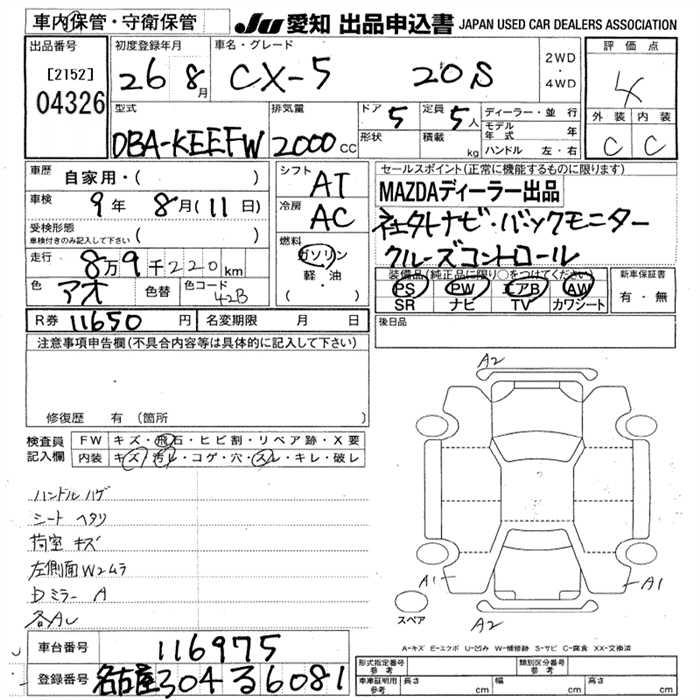 車内保管・守衛保管
JU 愛知 出品申込書 JAPAN USED CAR DEALERS ASSOCIATION
出品番号 [2152] 04326
初度登録年月 26 8月
車名・グレード CX-5 20S
2WD・4WD
評価点 4
外装 C 内装 C
型式 DBA-KEEFW
排気量 2000 CC
ドア 5 定員 5人
形状 積載 kg
ディーラー・並行
モデル年式 年
ハンドル 左・右
車歴 自家用・( )
車検 9年 8月(11日)
受検形態 車検付きのみ記入して下さい ( )
走行 8万9千220km
色 アオ 色替 色コード 42B
シフト AT
冷房 AC
燃料 ガソリン・軽・油 ( )
セールスポイント(正常に機能するものに限ります)
MAZDAディーラー出品
社外ナビ・バックモニター
クルーズコントロール
装備品(純正品に限り○をつけてください)
PS PW エアB AW
SR ナビ TV カワシート
新車保証書 有・無
R券 11650円 名変期限 月 日
後日品
注意事項申告欄(不具合内容等は具体的に記入して下さい)
修復歴 有(箇所 )
検査員記入欄
FW キズ・飛石・ヒビ割・リペア跡・X要
内装 キズ・汚レ・コゲ・穴・スレ・キレ・破レ
ハンドルハゲ
シート ヘタリ
荷室 キズ
左側面W2ムラ
Dミラー A
各AU
A2
A1
A1
A2
スペア
A-キズ E-エクボ U-凹み W-補修跡 S-サビ C-腐食 XX-交換済
車台番号 116975
登録番号 名古屋304る6081
形式指定番号 参考
類別区分番号 参考
車庫証明用 参考 長さ cm 幅 cm 高さ cm